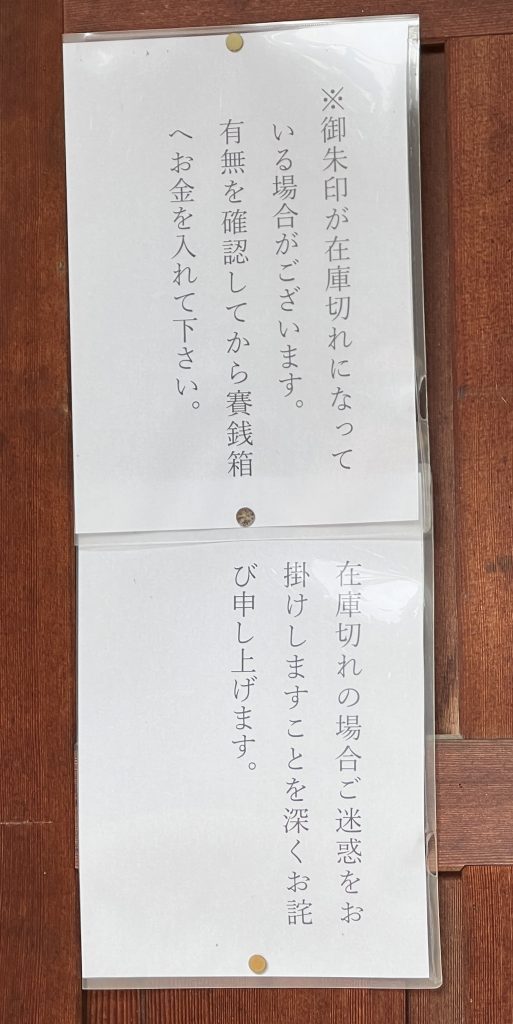 ※御朱印が在庫切れになって
いる場合がございます。
有無を確認してから賽銭箱
へお金を入れて下さい。
在庫切れの場合ご迷惑をお
掛けしますことを深くお詫
び申し上げます。